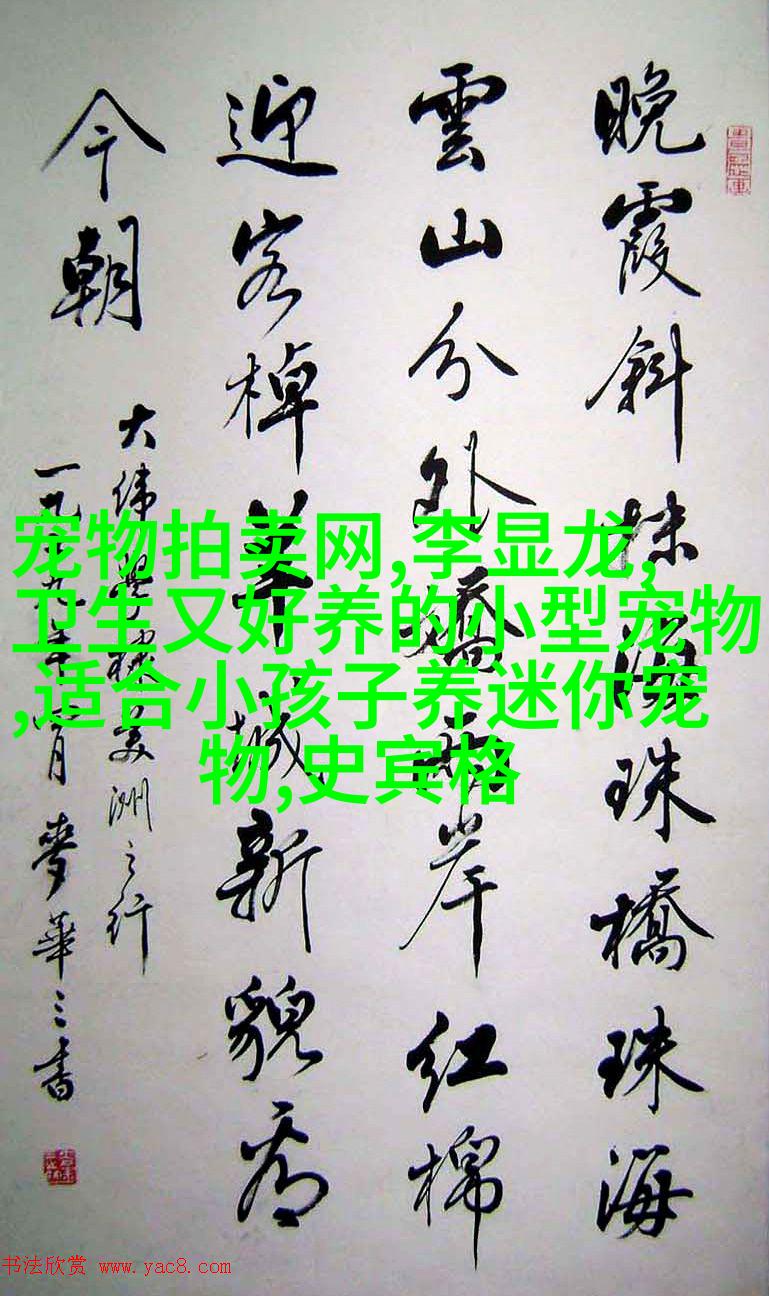 晚霞斜抹海珠橋珠海
雲山分外嬌兩岸红棉
迎客棹羊城新貌看
今朝
美洲之行
麥華三書
宠物拍卖网,李显龙,
卫生又好养的小型宠物
,适合小孩子养迷你宠
物,史宾格
书法欣赏 www.yac8.com